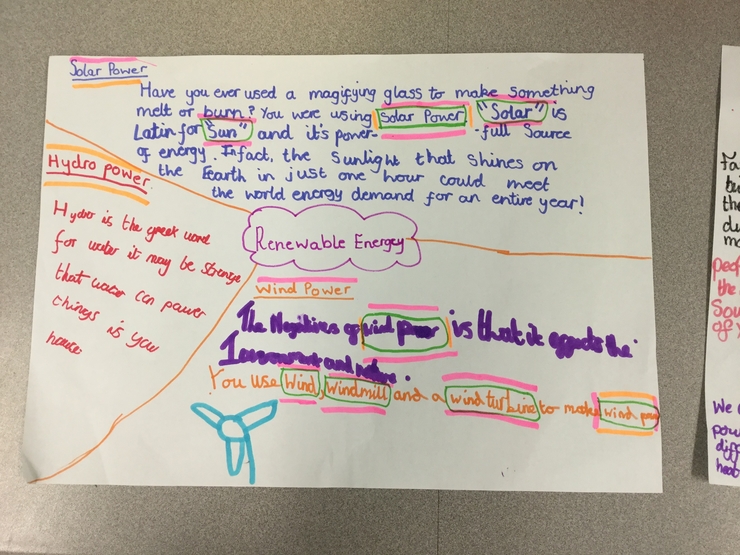 Solar Power
Have you ever used a magifying glass to make something
melt or burn? You were using Solar Power "Solar" is
Latin for "Sun" and it's power- -full Source
of energy. Infact, the Sunlight that shines on
the Earth in just one hour could meet
the world energy demand for an entire year!
Hydro power
Hydro is the greek word
for water it may be strange
that water can power
things is you
house
Renewable Energey
Wind Power
The Negitives of wind power is that it affects the
and nature.
You use Wind, Windmill and a wind turbine to make wind
We